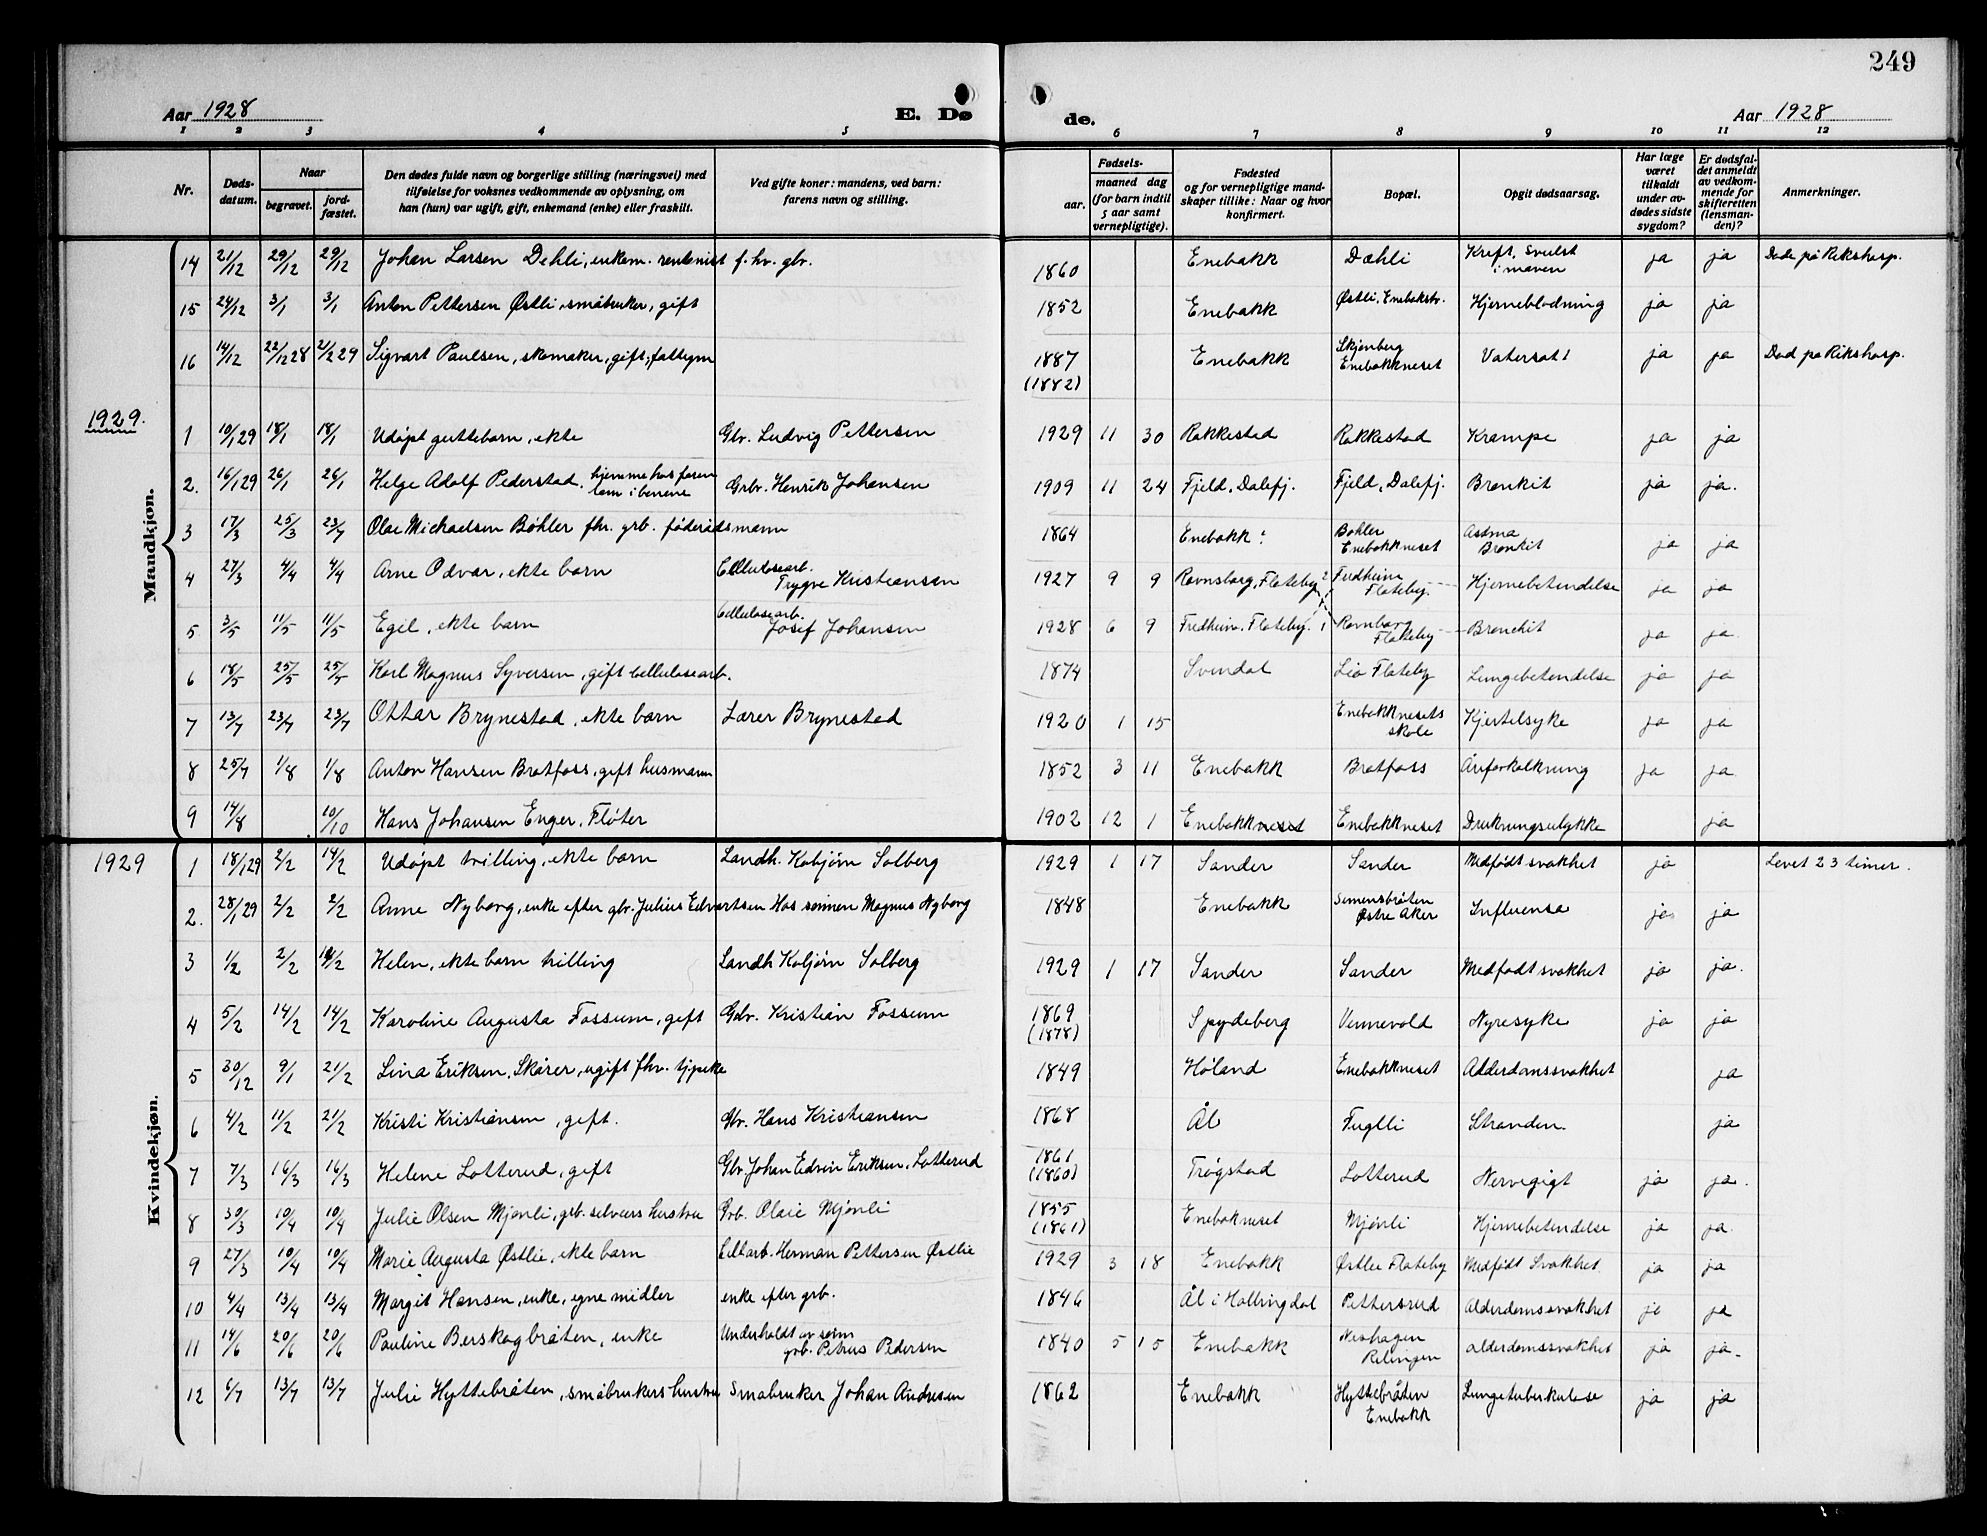 249
Aar 1928 E. Dø de. Aar 1928
1 2 3 4 5 6 7 8 9 10 11 12
Nr. Døds-datum. Naar begravet. jord-fæstet. Den dødes fulde navn og borgerlige stilling (næringsvei) med tilføielse for voksnes vedkommende av oplysning, om han (hun) var ugift, gift, enkemand (enke) eller fraskilt. Ved gifte koner: mandens, ved barn: farens navn og stilling. Fødsels- aar. maaned dag (for barn indtil 5 aar samt vernepligtige). Fødested og for vernepligtige mandskaper tillike: Naar og hvor konfirmert. Bopæl. Opgit dødsaarsag. Har læge været tilkaldt under avdødes sidste sygdom? Er dødsfaldet anmeldt av vedkommende for skifteretten (lensmanden)? Anmerkninger.
Mandkjøn.
14 21/12 29/12 29/12 Johan Larsen Dehli, enkem. rentenist f. hv. gbr. 1860 Enebakk Dæhli Kreft, Svulst i maven ja ja Døde på Rikshosp.
15 24/12 3/1 3/1 Anton Pettersen Østli, småbruker, gift 1852 Enebakk Østli, Enebakkbr. Hjerneblødning ja ja
16 14/12 22/12 28 2/2 29 Sigvart Paulsen, skomaker, gift, fattigm 1887 (1882) Enebakk Skjønberg Enebakkneset Vatersot ja ja Død på Rikshosp.
1929.
1 10/1 29 18/1 18/1 Udøpt guttebarn, ekte Gbr. Ludvig Pettersen 1929 11 30 Rakkestad Rakkestad Krampe ja ja
2. 16/1 29 26/1 26/1 Helge Adolf Pederstad. hjemme hos faren lam i benene Grbr. Henrik Johansen 1909 11 24 Fjeld, Dalefj. Fjeld, Dalefj. Bronkit ja ja.
3 17/3 25/3 23/7 Olae Michaelsen Bøhler fhv. grb. føderådsmann 1864 Enebakk Bøhler Enebakkneset Astma Bronkit ja ja
4 27/3 4/4 4/4 Arne Odvar, ekte barn Cellulosearb. Trygve Kristiansen 1927 9 9 Ravnsborg, Flateby Fredheim Flateby. Hjernebetendelse ja ja
5 3/5 11/5 11/5 Egil, ekte barn Cellulosearb. Josef Johansen 1928 6 9 Fredheim, Flateby. Ravnborg Flateby Bronchit ja ja
6 18/5 25/5 25/5 Karl Magnus Syversen, gift Cellulosearb. 1874 Svindal Lia Flateby Lungebetendelse ja ja
7 13/7 23/7 23/7 Ottar Brynestad, ekte barn Lærer Brynestad 1920 1 15 Enebakknesets skole Kjertelsyke ja ja
8 25/7 1/8 1/8 Anton Hansen Bratfoss, gift husmann 1852 3 11 Enebakk Bratfoss Åreforkalkning ja ja
9 14/8 10/10 Hans Johansen Enger, Fløter 1902 12 1 Enebakkneset Enebakkneset Drukningsulykke ja
Kvindekjøn.
1929
1 18/1 29 2/2 14/2 Udøpt trilling, ekte barn Landh. Kobjørn Solberg 1929 1 17 Sander Sander Medfødt svakhet ja Levet 23 timer.
2. 28/1 29 2/2 2/2 Anne Nyborg, enke efter gbr. Julius Edvartsen Hos sønnen Magnus Nyborg 1848 Enebakk Simensbråten Østre Aker Influensa ja ja
3 1/2 2/2 14/2 Helen, ekte barn trilling Landh Koljørn Solberg 1929 1 17 Sander Sander Medfødt svakhet ja ja.
4 5/2 14/2 14/2 Karoline Augusta Fossum, gift Gbr. Kristian Fossum 1869 (1878) Spydeberg Vennevold Nyresyke ja ja
5 30/12 9/1 21/2 Lina Eriksen, Skårer, ugift fhv. tjpike 1849 Høland Enebakkneset Alderdomssvakhet ja
6 4/2 11/2 21/2 Kristi Kristiansen, gift. Gbr. Hans Kristiansen 1868 Ål Fuglli Stranden. ja
7 7/3 16/3 16/3 Helene Lotterud, gift Gbr. Johan Edvin Eriksen, Lotterud 1861 (1860) Trøgstad Lotterud Nervegigt ja ja.
8 30/3 10/4 10/4 Julie Olsen Mjønli, grb. selveiers hustru Grb. Olaie Mjønli 1855 (1861) Enebakneset Mjønli Hjernebetendelse ja ja
9 27/3 10/4 10/4 Marie Augusta Østlie, ekte barn Cellarb. Herman Pettersen Østlie 1929 3 18 Enebakk Østlie Flateby Medfødt Svakhet ja ja
10 4/4 13/4 13/4 Margit Hansen, enke, egne midler enke efter grb. 1846 Ål i Hallingdal Pettersrud Alderdomssvakhet ja ja
11 14/6 20/6 20/6 Pauline Berskogbråten, enke Underholdt av sønn grb. Petrus Pedersen 1840 5 15 Enebakk Nerhagen Relingen alderdomssvakhet ja ja
12 6/7 13/7 13/7 Julie Hyttebråten, småbrukers hustru Småbruker Johan Andresen 1862 Enebakk Hyttebråten Enebakk Lungetuberkulose ja ja